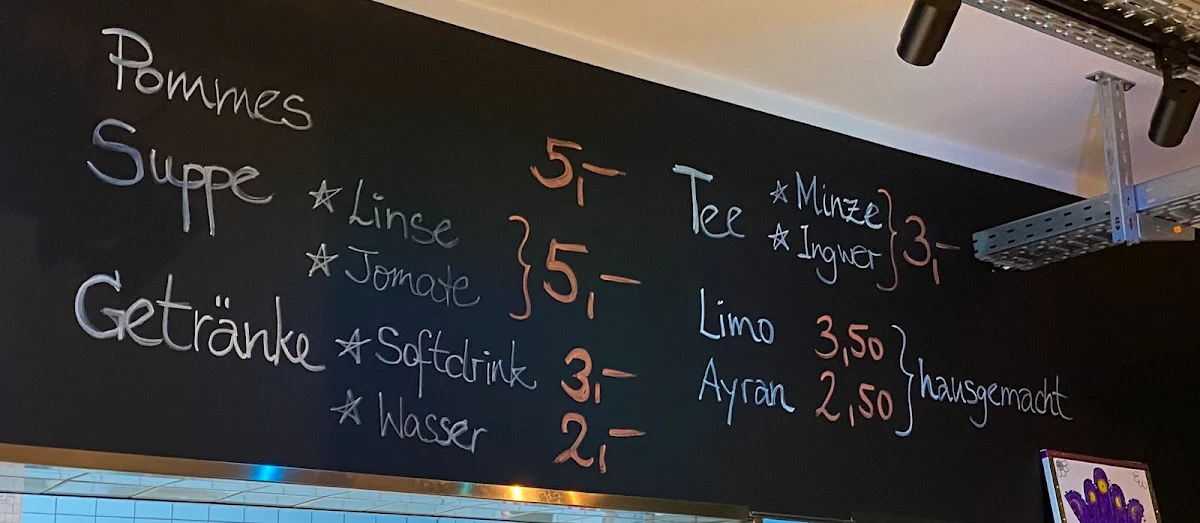 Pommes 5,-
Suppe
☆ Linse
☆ Tomate } 5,-
Getränke
☆ Softdrink 3,-
☆ Wasser 2,-
Tee
☆ Minze
☆ Ingwer } 3,-
Limo 3,50
Ayran 2,50 } hausgemacht